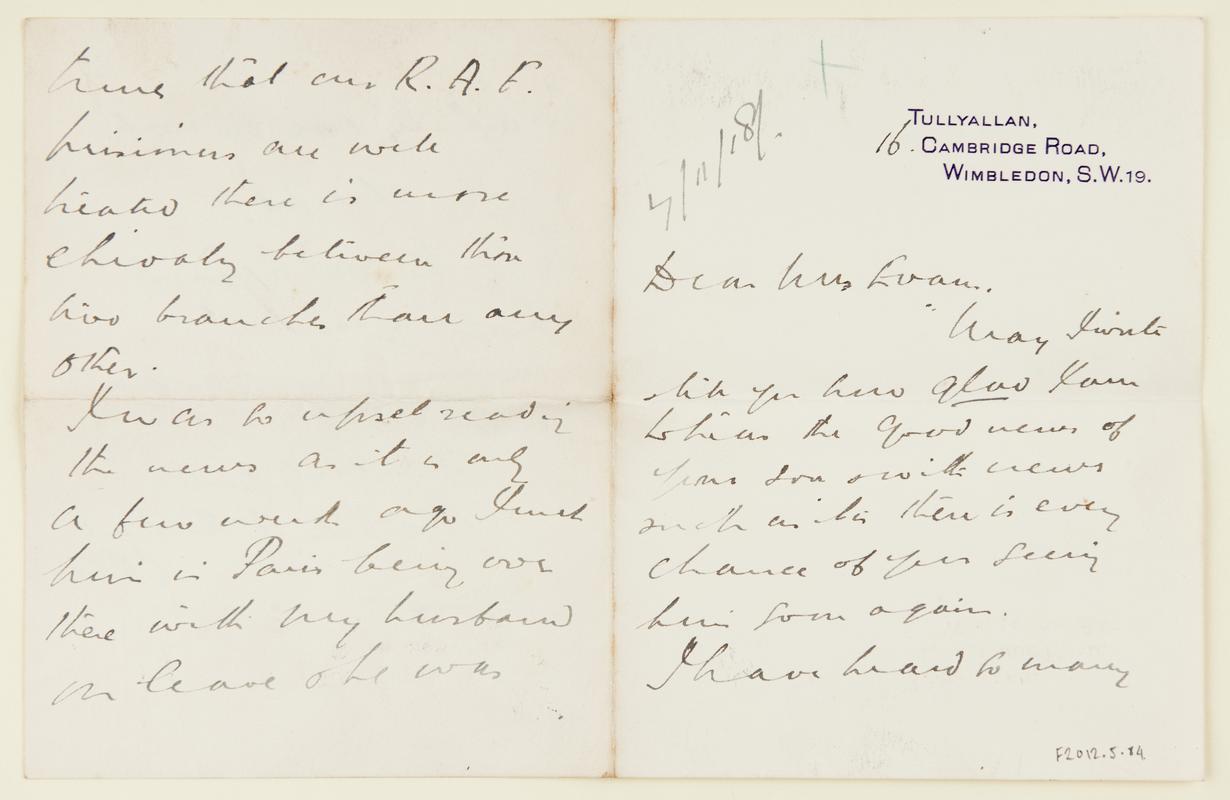 7/11/18/.
TULLYALLAN,
16. CAMBRIDGE ROAD,
WIMBLEDON, S.W.19.
Dear Mrs Evans.
May I write
& tell you how glad I am
to hear the good news of
your son & with news
such as this there is every
chance of your seeing
him soon again.
I have heard so many
times that our R.A.F.
prisoners are well
treated there is more
chivalry between those
two branches than any
other.
I was so upset reading
the news as it is only
a few weeks ago I met
him in Paris being over
there with my husband
on leave & he was
F2012.5.84